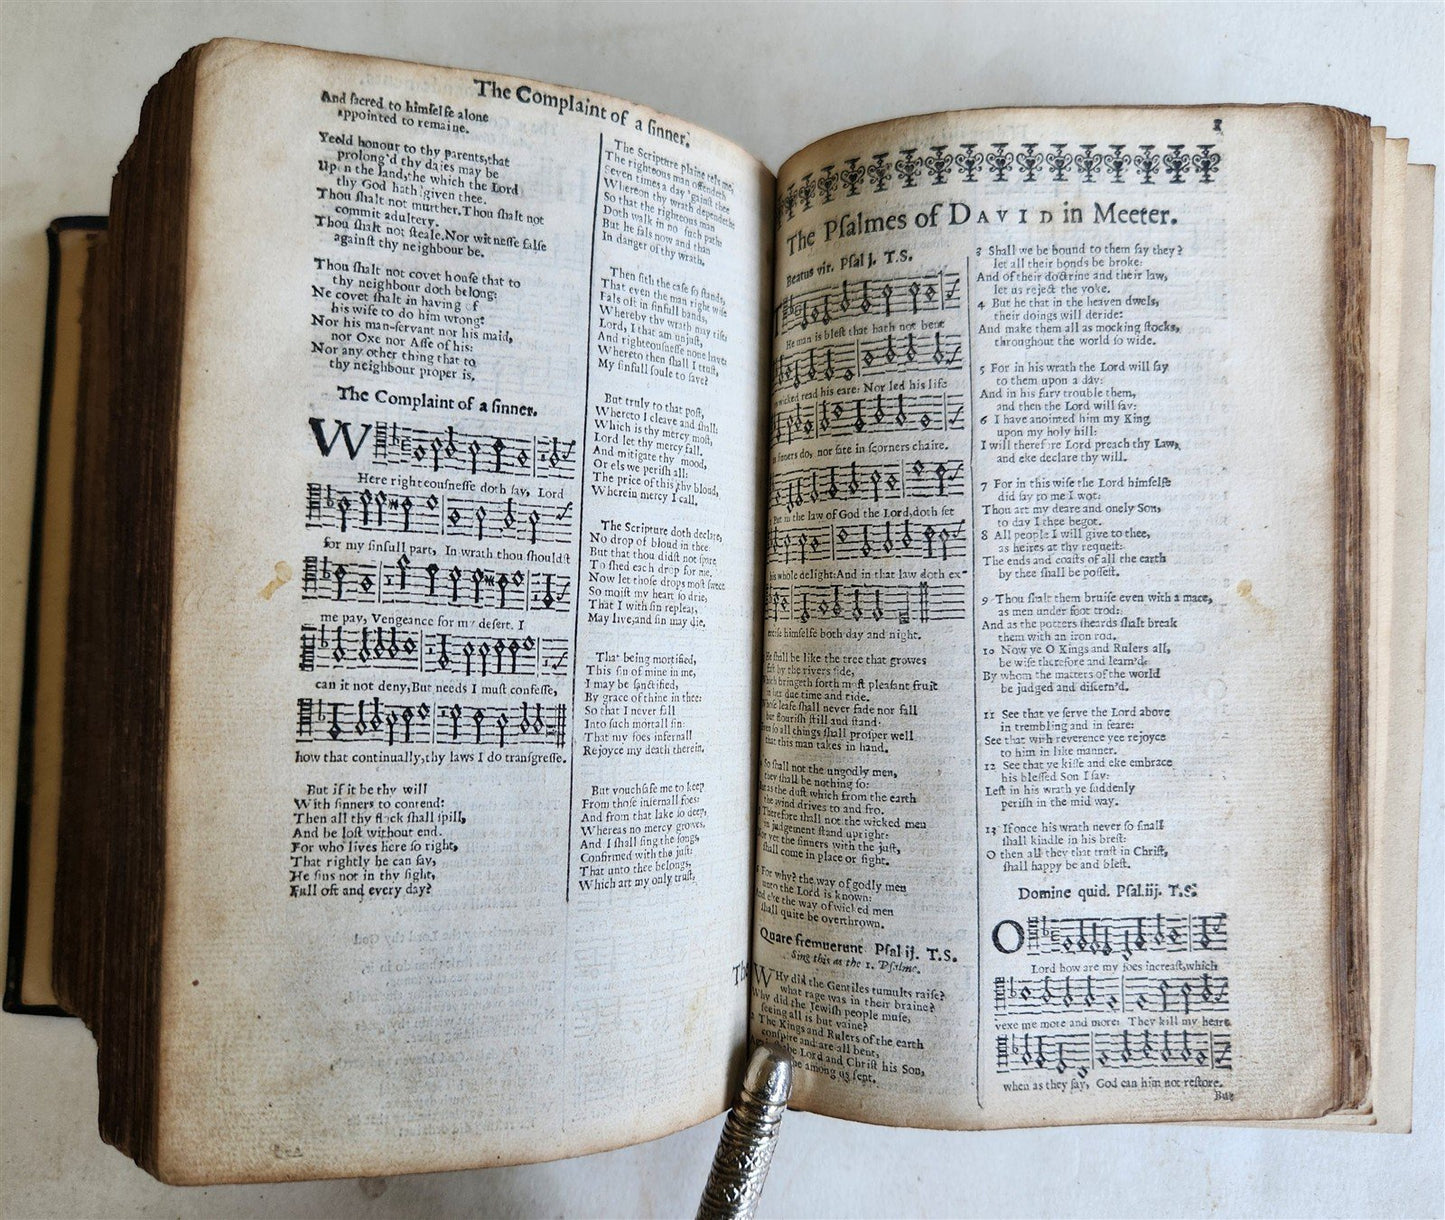 The Complaint of a ſinner.
And ſacred to himſelfe alone
appointed to remaine.
Yeeld honour to thy parents,that
prolong'd thy daies may be
Upon the land,the which the Lord
thy God hath given thee.
Thou ſhalt not murther.Thou ſhalt not
commit adultery.
Thou ſhalt not ſteale.Nor witneſſe falſe
againſt thy neighbour be.
Thou ſhalt not covet houſe that to
thy neighbour doth belong:
Ne covet ſhalt in having of
his wife to do him wrong:
Nor his man-ſervant nor his maid,
nor Oxe nor Aſſe of his:
Nor any other thing that to
thy neighbour proper is.
The Complaint of a ſinner.
WHere righteouſneſſe doth ſay, Lord
for my ſinfull part, In wrath thou ſhouldſt
me pay, Vengeance for my deſert. I
can it not deny,But needs I muſt confeſſe,
how that continually,thy laws I do tranſgreſſe.
But if it be thy will
With ſinners to contend:
Then all thy flock ſhall ſpill,
And be loſt without end.
For who lives here ſo right,
That rightly he can ſay,
He ſins not in thy ſight,
Full oft and every day?
The Scripture plaine tels me,
The righteous man offendeth
Seven times a day 'gainſt thee
Whereon thy wrath dependeth:
So that the righteous man
Doth walk in no ſuch path:
But he fals now and than
In danger of thy wrath.
Then ſith the caſe ſo ſtands,
That even the man right wiſe
Fals oft in ſinfull bands,
Whereby thy wrath may riſe:
Lord, I that am unjuſt,
And righteouſneſſe none have:
Whereto then ſhall I truſt,
My ſinfull ſoule to ſave?
But truly to that poſt,
Whereto I cleave and ſhall:
Which is thy mercy moſt,
Lord let thy mercy fall.
And mitigate thy mood,
Or els we periſh all:
The price of this thy bloud,
Wherein mercy I call.
The Scripture doth declare,
No drop of bloud in thee
But that thou didſt not ſpare
To ſhed each drop for me.
Now let thoſe drops moſt ſweet
So moiſt my heart ſo drie,
That I with ſin repleat,
May live,and ſin may die.
That being mortified,
This ſin of mine in me,
I may be ſanctified,
By grace of thine in thee:
So that I never fall
Into ſuch mortall ſin:
That my foes infernall
Rejoyce my death therein.
But vouchſafe me to keep
From thoſe infernall foes:
And from that lake ſo deep,
Whereas no mercy growes.
And I ſhall ſing the ſongs,
Confirmed with the juſt:
That unto thee belongs,
Which art my only truſt.
The
The Pſalmes of DAVID in Meeter.
Beatus vir. Pſal j. T.S.
He man is bleſt that hath not bent
wicked read his eare: Nor led his life
ſinners do, nor ſate in ſcorners chaire.
But in the law of God the Lord,doth ſet
his whole delight:And in that law doth ex-
erciſe himſelfe both day and night.
He ſhall be like the tree that growes
faſt by the rivers ſide,
Which bringeth forth moſt pleaſant fruit
in her due time and tide.
Whoſe leafe ſhall never fade nor fall
but flouriſh ſtill and ſtand:
Even ſo all things ſhall proſper well
that this man takes in hand.
So ſhall not the ungodly men,
they ſhall be nothing ſo:
But as the duſt which from the earth
the wind drives to and fro.
Therefore ſhall not the wicked men
in judgement ſtand upright:
Nor yet the ſinners with the juſt,
ſhall come in place or ſight.
For why? the way of godly men
unto the Lord is known:
And eke the way of wicked men
ſhall quite be overthrown.
Quare fremuerunt Pſal ij. T.S.
Sing this as the 1. Pſalme.
WHy did the Gentiles tumults raiſe?
what rage was in their braine?
Why did the Jewiſh people muſe,
ſeeing all is but vaine?
2 The Kings and Rulers of the earth
conſpire and are all bent,
Againſt the Lord and Chriſt his Son,
he among us ſent.
3 Shall we be bound to them ſay they?
let all their bonds be broke:
And of their doctrine and their law,
let us reject the yoke.
4 But he that in the heaven dwels,
their doings will deride:
And make them all as mocking ſtocks,
throughout the world ſo wide.
5 For in his wrath the Lord will ſay
to them upon a day:
And in his fury trouble them,
and then the Lord will ſay:
6 I have anointed him my King
upon my holy hill:
I will therefore Lord preach thy Law,
and eke declare thy will.
7 For in this wiſe the Lord himſelfe
did ſay to me I wot:
Thou art my deare and onely Son,
to day I thee begot.
8 All people I will give to thee,
as heires at thy requeſt:
The ends and coaſts of all the earth
by thee ſhall be poſſeſt.
9 Thou ſhalt them bruiſe even with a mace,
as men under foot trod:
And as the potters ſheards ſhalt break
them with an iron rod.
10 Now ye O Kings and Rulers all,
be wiſe therefore and learn'd:
By whom the matters of the world
be judged and diſcern'd.
11 See that ye ſerve the Lord above
in trembling and in feare:
See that with reverence yee rejoyce
to him in like manner.
12 See that ye kiſſe and eke embrace
his bleſſed Son I ſay:
Leſt in his wrath ye ſuddenly
periſh in the mid way.
13 If once his wrath never ſo ſmall
ſhall kindle in his breſt:
O then all they that truſt in Chriſt,
ſhall happy be and bleſt.
Domine quid. Pſal.iij. T.S.
O Lord how are my foes increaſt,which
vexe me more and more: They kill my heart
when as they ſay, God can him not reſtore.
But